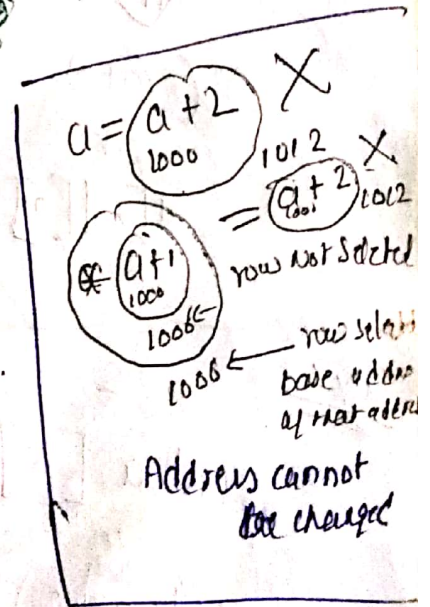 a = a + 2 X
1000 1012 X
= a + 2 1012
* a + 1
1000 row Not Selected
1006 ←
1006 ← row selecti
base addre
of that addre
Address cannot
be changed